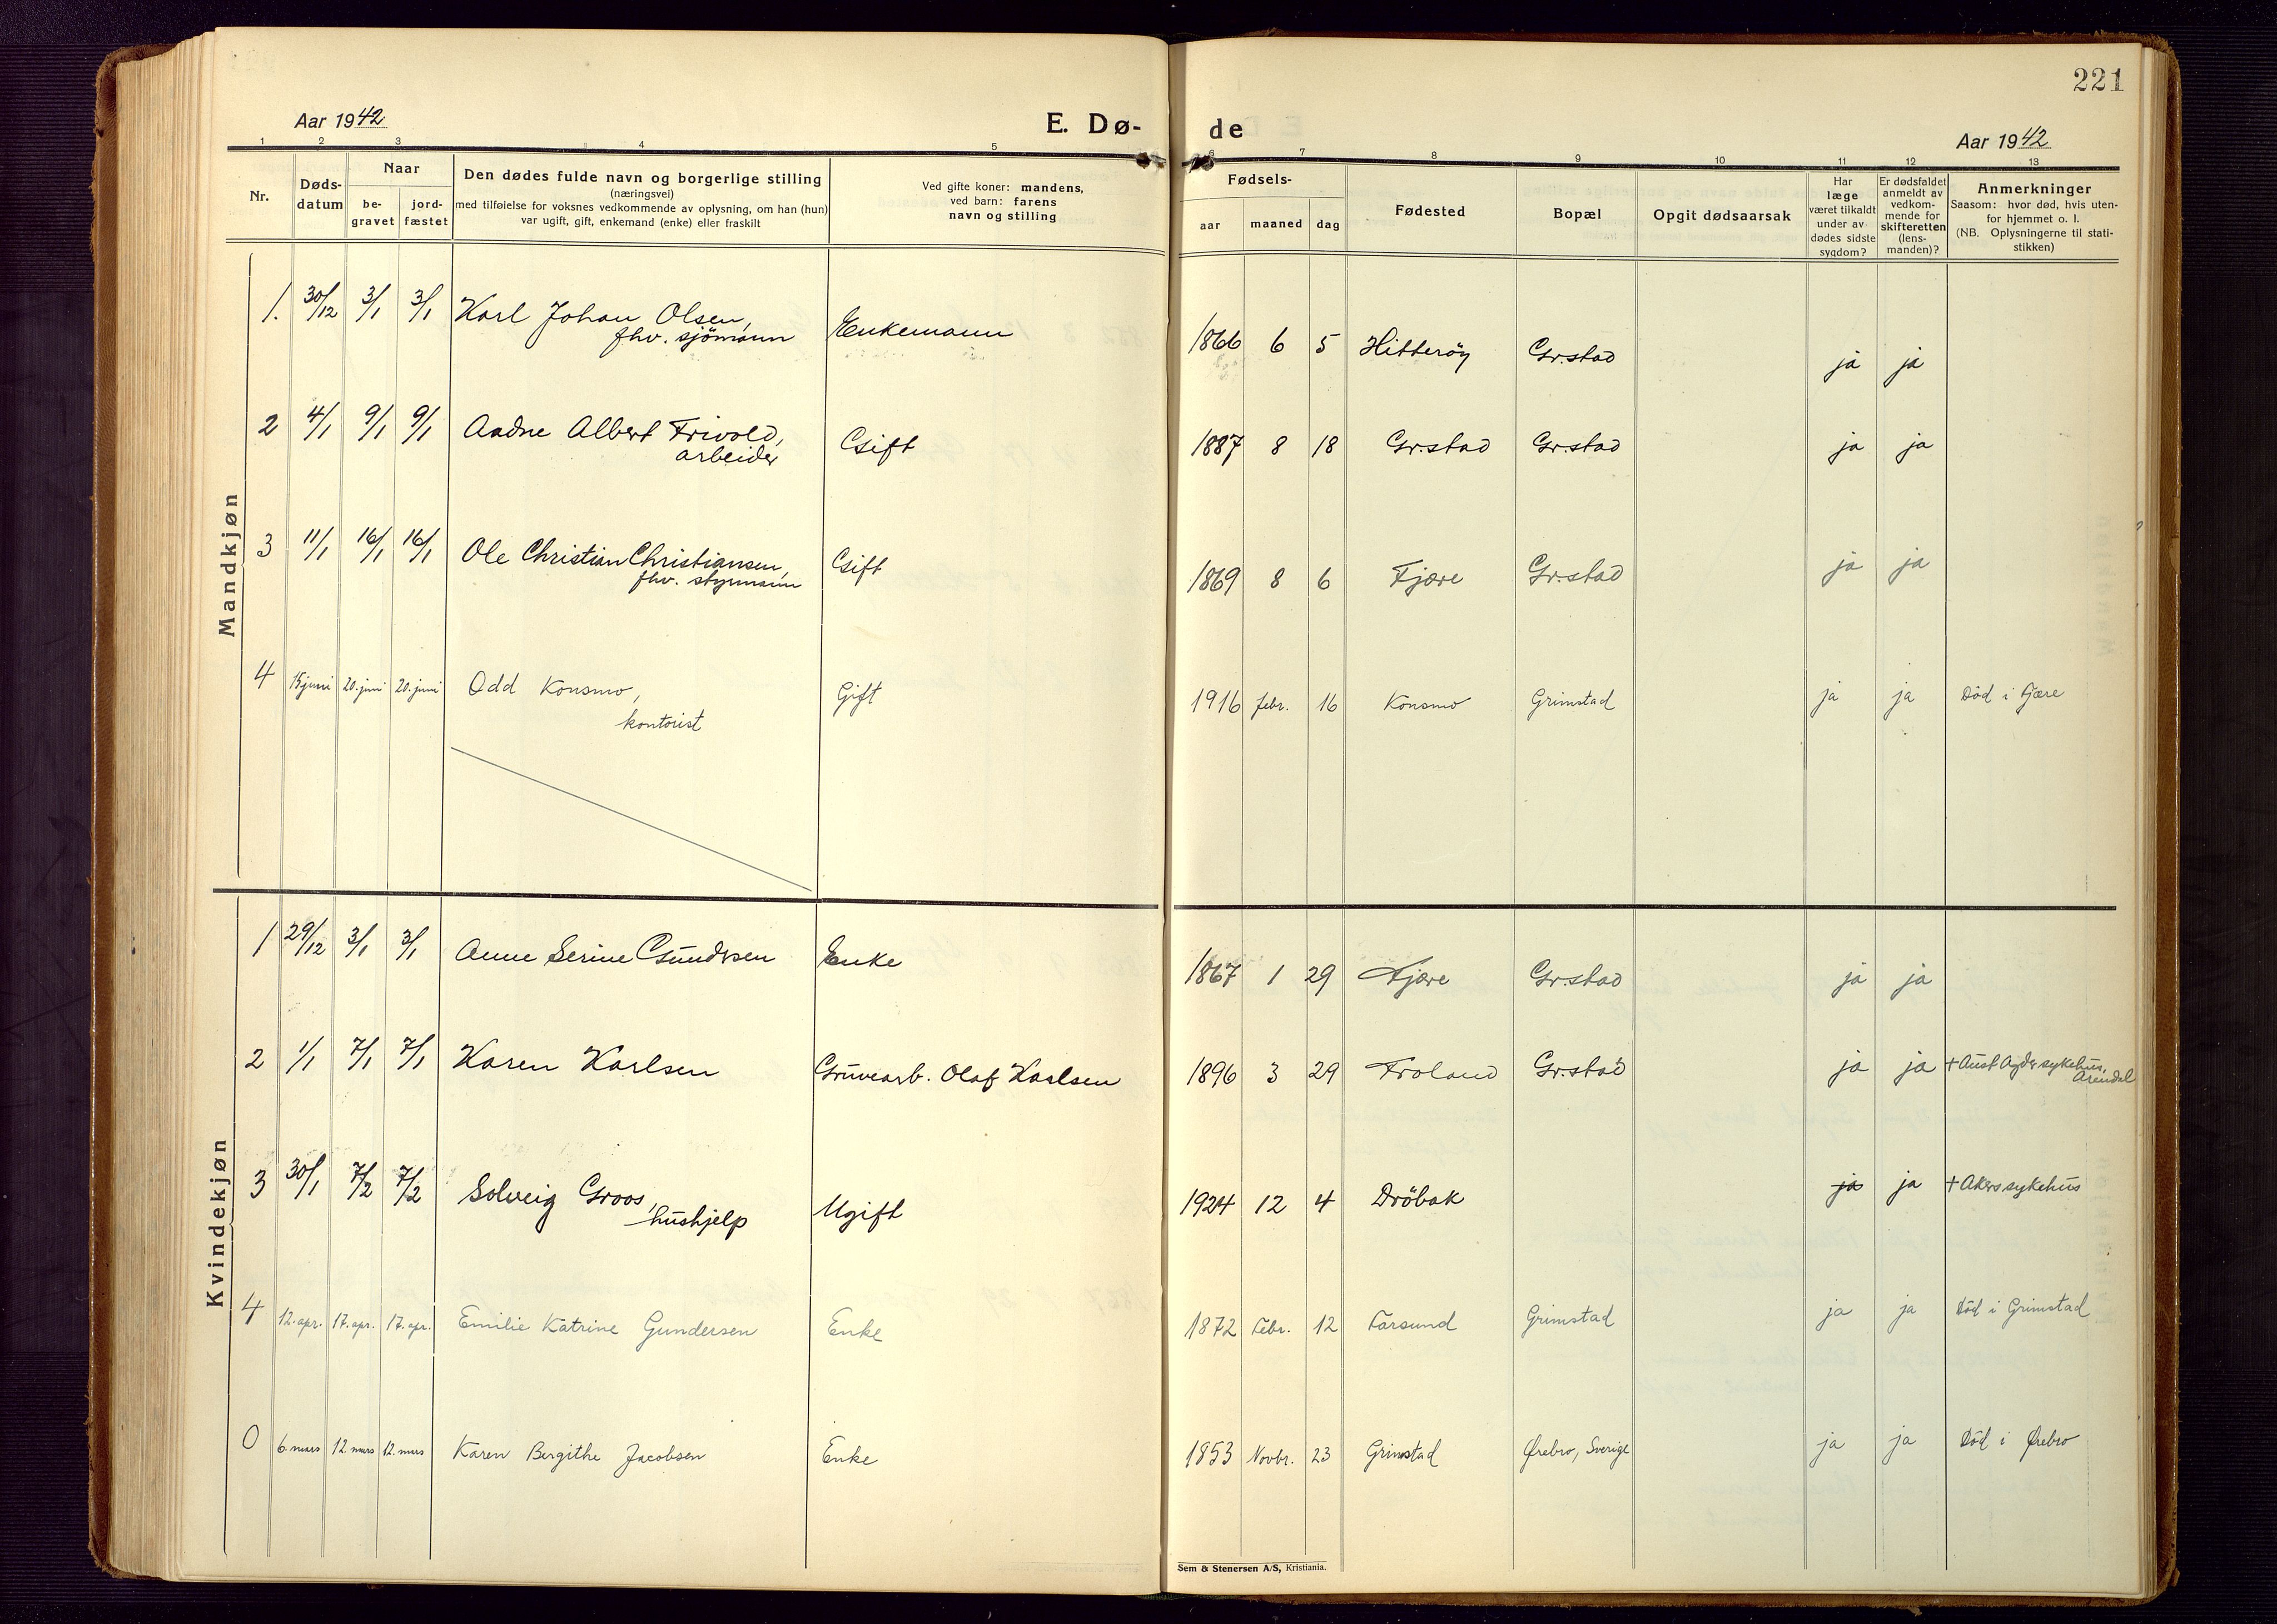 221
Aar 1942
E. Dø-
de
Aar 1942
1 2 3 4 5 6 7 8 9 10 11 12 13
Nr.
Døds-
datum
Naar
be-
gravet
jord-
fæstet
Den dødes fulde navn og borgerlige stilling
(næringsvei)
med tilføielse for voksnes vedkommende av oplysning, om han (hun)
var ugift, gift, enkemand (enke) eller fraskilt
Ved gifte koner: mandens,
ved barn: farens
navn og stilling
Fødsels-
aar maaned dag
Fødested
Bopæl
Opgit dødsaarsak
Har
læge
været tilkaldt
under av-
dødes sidste
sygdom?
Er dødsfaldet
anmeldt av
vedkom-
mende for
skifteretten
(lens-
manden)?
Anmerkninger
Saasom: hvor død, hvis uten-
for hjemmet o. l.
(NB. Oplysningerne til stati-
stikken)
Mandkjøn
1. 30/12 3/1 3/1 Karl Johan Olsen, Enkemann 1866 6 5 Hitteröy Gr.stad ja ja
fhv. sjömann
2 4/1 9/1 9/1 Aadne Albert Frivold, Gift 1887 8 18 Gr.stad Gr.stad ja ja
arbeider
3 11/1 16/1 16/1 Ole Christian Christiansen, Gift 1869 8 6 Fjære Gr.stad ja ja
fhv. styrmann
4 15 juni 20. juni 20. juni Odd Konsmo, Gift 1916 febr. 16 Konsmo Grimstad ja ja Död i Fjære
kontorist
Kvindekjøn
1 29/12 3/1 3/1 Anne Serine Gundersen Enke 1867 1 29 Fjære Gr.stad ja ja
2 1/1 7/1 7/1 Karen Karlsen Gruvearb. Olaf Karlsen 1896 3 29 Froland Gr.stad ja ja + Aust Agder sykehus,
Arendal
3 30/1 7/2 7/2 Solveig Groos, Ugift 1924 12 4 Dröbak ja ja + Akers sykehus
hushjelp
4 12. apr. 17. apr. 17. apr. Emilie Katrine Gundersen Enke 1872 Febr. 12 Farsund Grimstad ja ja Död i Grimstad
0 6. mars 12. mars 12. mars Karen Bergithe Jacobsen Enke 1853 Novbr. 23 Grimstad Ørebro, Sverige ja ja Död i Ørebro
Sem & Stenersen A/S, Kristiania.